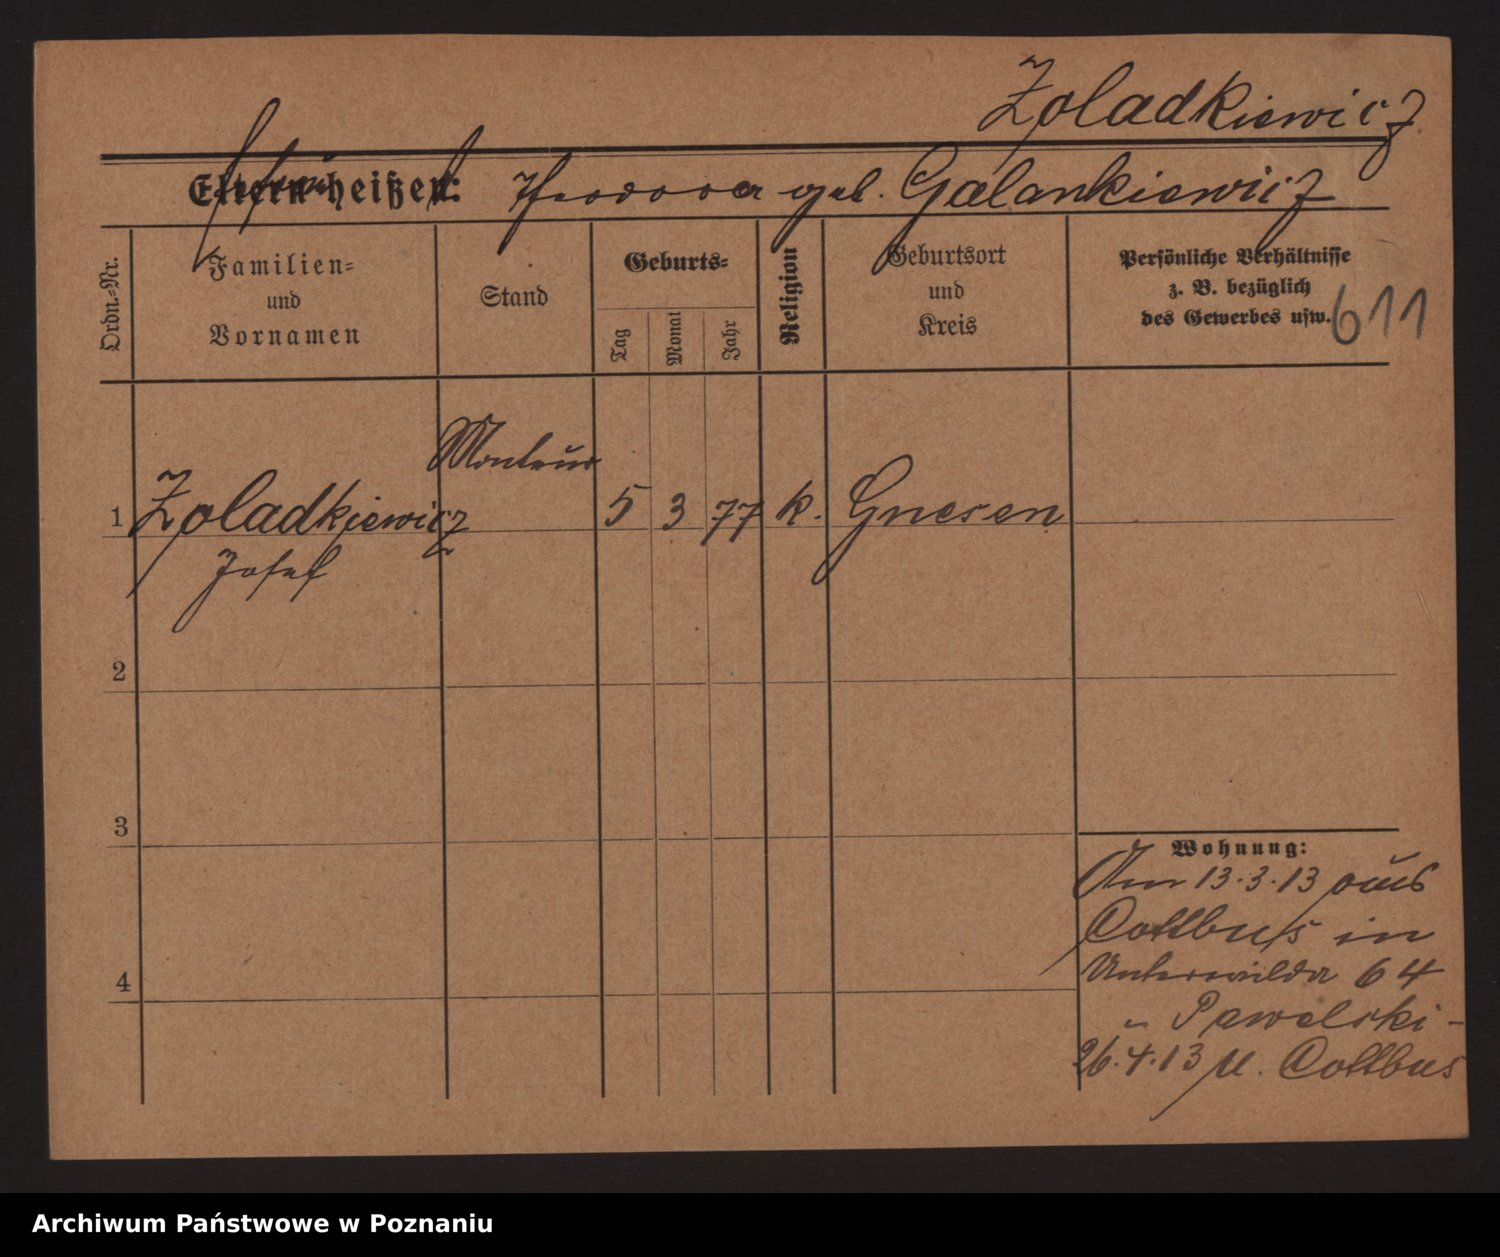 Zoladkiewicz
Eltern heißen: Theodora geb. Galankiewicz
Ordn.-Nr.
Familien-
und
Vornamen
Stand
Geburts-
Tag
Monat
Jahr
Religion
Geburtsort
und
Kreis
Persönliche Verhältnisse
z. B. bezüglich
des Gewerbes usw.
611
Monteur
1 Zoladkiewicz 5 3 77 k. Gnesen
Josef
2
3
4
Wohnung:
Am 13.3.13 aus
Cottbus in
Unterwilda 64
Pawelski-
26.4.13 n. Cottbus
Archiwum Państwowe w Poznaniu